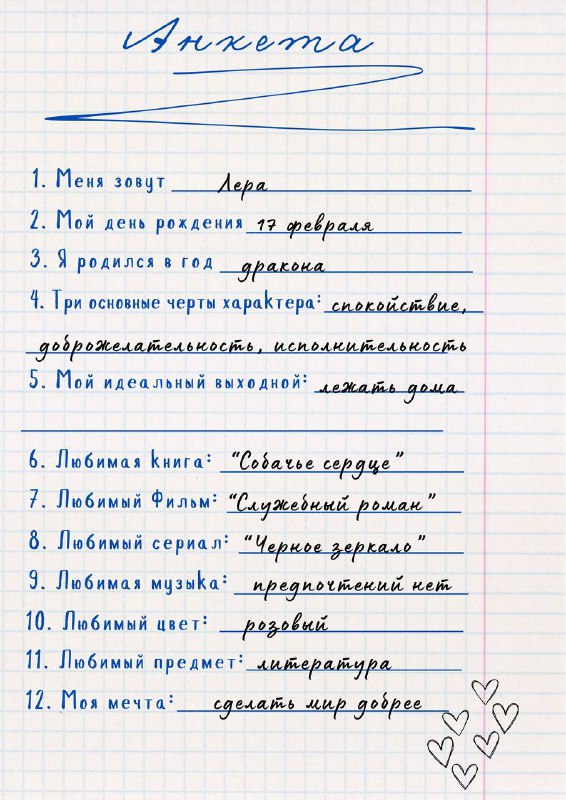 Анкета
1. Меня зовут Лера
2. Мой день рождения 17 февраля
3. Я родился в год дракона
4. Три основные черты характера: спокойствие,
доброжелательность, исполнительность
5. Мой идеальный выходной: лежать дома
6. Любимая книга: "Собачье сердце"
7. Любимый Фильм: "Служебный роман"
8. Любимый сериал: "Черное зеркало"
9. Любимая музыка: предпочтений нет
10. Любимый цвет: розовый
11. Любимый предмет: литература
12. Моя мечта: сделать мир добрее